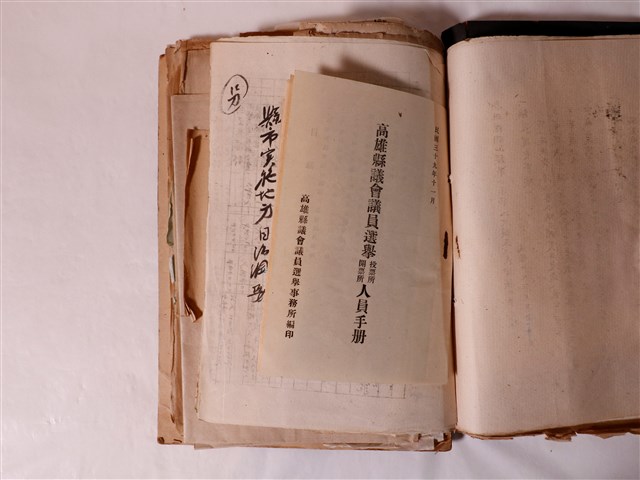 民國三十九年十一月
高雄縣議會議員選舉投票所開票所人員手册
高雄縣議會議員選舉事務所編印
縣市實施地方自治綱要